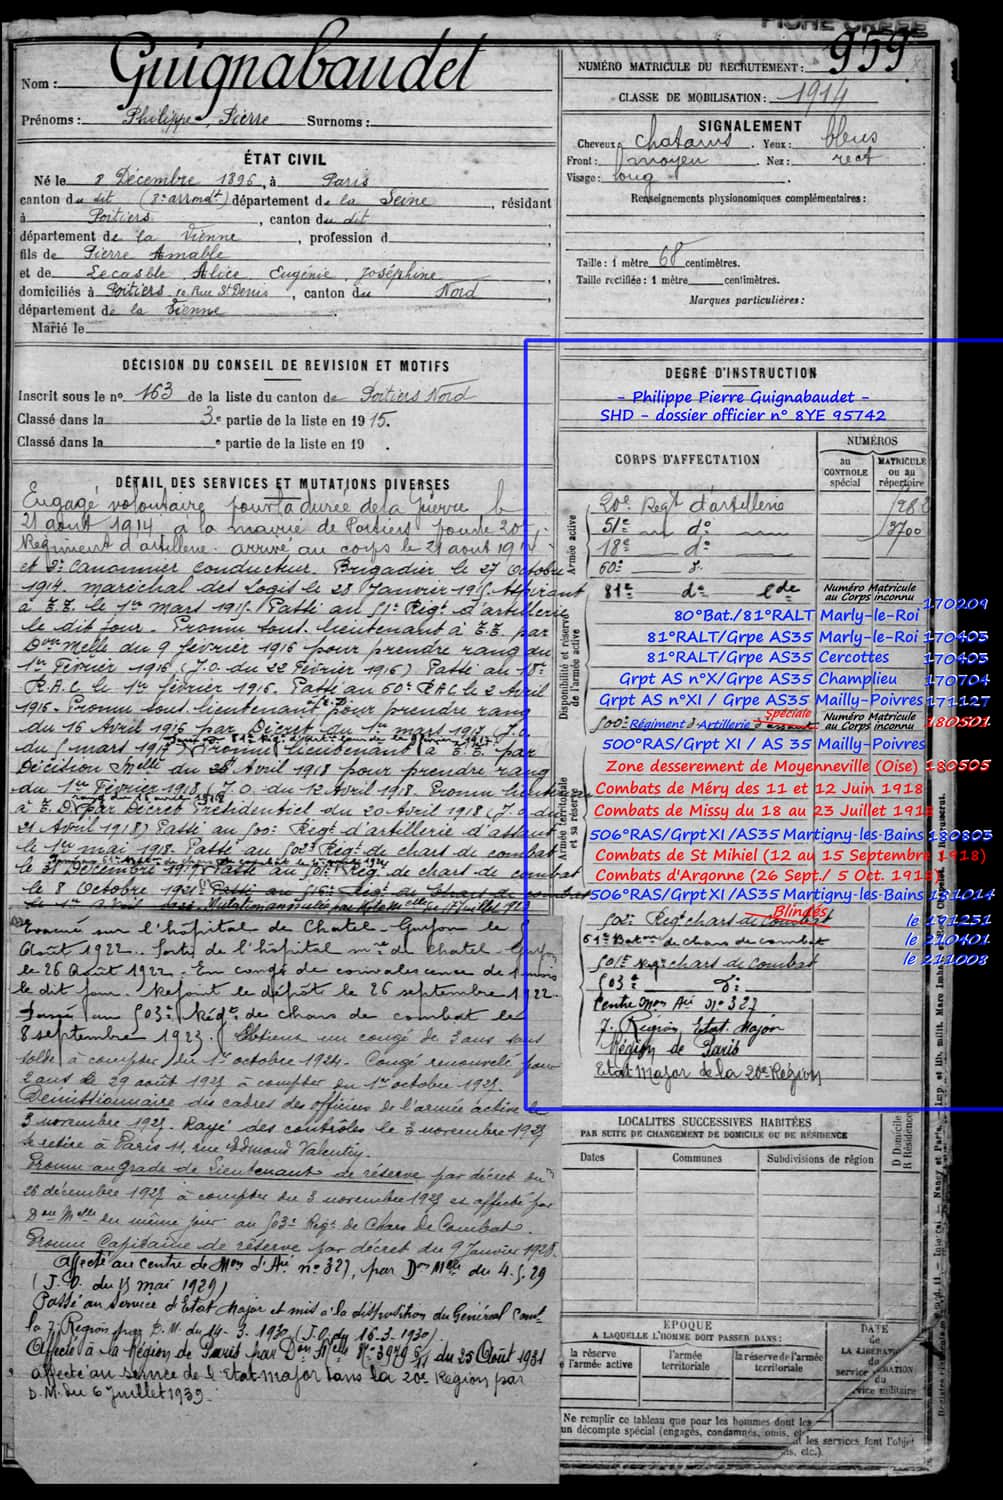 FICHE CRÉÉE
Nom : Guignabaudet
Prénoms : Philippe, Pierre Surnoms :
ÉTAT CIVIL
Né le 8 Décembre 1896, à Paris
canton du dit (8e arrondt) département de la Seine, résidant
à Poitiers, canton du dit
département de la Vienne, profession d
fils de Pierre Amable
et de Lecasble Alice Eugénie Joséphine
domiciliés à Poitiers Rue St Denis, canton du Nord
département de la Vienne
Marié le
NUMÉRO MATRICULE DU RECRUTEMENT : 959
CLASSE DE MOBILISATION : 1914
SIGNALEMENT
Cheveux chatains. Yeux : bleus
Front : moyen. Nez : rect
Visage : long
Renseignements physionomiques complémentaires :
Taille : 1 mètre 68 centimètres.
Taille rectifiée : 1 mètre centimètres.
Marques particulières :
DÉCISION DU CONSEIL DE REVISION ET MOTIFS
Inscrit sous le no. 163 de la liste du canton de Poitiers Nord
Classé dans la 3e partie de la liste en 1915.
Classé dans la e partie de la liste en 19 .
DÉTAIL DES SERVICES ET MUTATIONS DIVERSES
Engagé volontaire pour la durée de la guerre le
21 août 1914 à la mairie de Poitiers pour le 20e
Régiment d'artillerie. arrivé au corps le 21 août 1914
et 2e Canonnier conducteur. Brigadier le 27 Octobre
1914. maréchal des Logis le 28 Janvier 1915. Aspirant
à T.T. le 1er mars 1915. Passé au 51e Régt d'artillerie
le dit jour. Promu sous-lieutenant à T.T. par
Don Melle du 9 février 1916 pour prendre rang du
1er Février 1916 (J.O. du 22 Février 1916) Passé au 18e
R.A.C. le 1er février 1916. Passé au 60e RAC le 2 Avril
1916. Promu sous-lieutenant à pour prendre rang
du 16 Avril 1916 par Décret du mars 1917 J.O.
du 5 mars 1917 Promu lieutenant à T.T. par
Décision Melle du 28 Avril 1918 pour prendre rang
du 1er Février 1918 (J.O. du 12 Avril 1918. Promu lieutenant
à T.D par Décret Présidentiel du 20 Avril 1918 (J.O. du
21 Avril 1918) Passé au 500e Régt d'artillerie d'assaut
le 1er mai 1918. Passé au 502e Régt de chars de combat
le 31 Décembre 1919. Passé au 501e Régt de chars de combat
le 8 Octobre 1921. Passé au 516e Régt de Chars de combat
Évacué sur l'hôpital de Chatel-Guyon le
Août 1922. Sorti de l'hôpital mre de Chatel Guyon
le 26 Août 1922. En congé de convalescence de 1 mois
le dit jour. Rejoint le dépôt le 26 septembre 1922.
Passé au 503e Régt de Chars de combat le
8 septembre 1923. Obtient un congé de 3 ans sans
solde à compter du 1er octobre 1924. Congé renouvelé pour
2 ans le 29 août 1925 à compter du 1er octobre 1925.
Démissionnaire des cadres des officiers de l'armée active le
3 novembre 1925. Rayé des contrôles le 3 novembre 1925
Se retire à Paris 11, rue Edmond Valentin.
Promu au grade de lieutenant de réserve par décret du
26 décembre 1925 à compter du 3 novembre 1925 et affecté par
Don Melle du même jour au 503e Régt de Chars de Combat.
Promu Capitaine de réserve par décret du 9 Janvier 1928.
Affecté au centre de Mon d'Arie no 327, par Don Melle du 4.5.29
(J.O. du 15 mai 1929)
Passé au Service d'Etat Major et mis à la disposition du Général Comt
la 7e Région par D.M. du 14-3-1930 (J.O. du 16-3-1930)
Affecté à la Région de Paris par Don Melle No 3979 du 25 Août 1931
affecté au service de l'Etat-major dans la 20e Région par
D.M. du 6 juillet 1939.
DEGRÉ D'INSTRUCTION
- Philippe Pierre Guignabaudet -
SHD - dossier officier n° 8YE 95742
CORPS D'AFFECTATION
NUMÉROS
au CONTROLE spécial
MATRICULE ou au répertoire
Armée active
20e Régt d'artillerie
51e do 3700
18e do
60e
Disponibilité et réserve de l'armée active
81e do Lde Numéro Matricule au Corps inconnu
170209
80°Bat./81°RALT Marly-le-Roi
81°RALT/Grpe AS35 Marly-le-Roi 170403
81°RALT/Grpe AS35 Cercottes 170403
Grpt AS n°X/Grpe AS35 Champlieu 170704
Grpt AS n°XI / Grpe AS35 Mailly-Poivres 171127
500e Régiment d'Artillerie Spéciale Numéro Matricule au Corps inconnu 180501
500°RAS/Grpt XI / AS 35 Mailly-Poivres
Armée territoriale et sa réserve
Zone desserement de Moyenneville (Oise) 180505
Combats de Méry des 11 et 12 Juin 1918
Combats de Missy du 18 au 23 Juillet 1918
506°RAS/GrptXI/AS35 Martigny-les-Bains 180803
Combats de St Mihiel (12 au 15 Septembre 1918)
Combats d'Argonne (26 Sept./ 5 Oct. 1918)
506°RAS/GrptXI/AS35 Martigny-les-Bains 181014
Blindés
502e Régt chars de combat le 191231
61e Baton de chars de combat le 210401
501e Régt chars de Combat le 211008
503e do
Centre Mon Arie No 327
7e Région Etat Major
Région de Paris
Etat Major de la 20e Région
LOCALITÉS SUCCESSIVES HABITÉES
PAR SUITE DE CHANGEMENT DE DOMICILE OU DE RÉSIDENCE
Dates Communes Subdivisions de région D Domicile R Résidence
ÉPOQUE
A LAQUELLE L'HOMME DOIT PASSER DANS :
la réserve de l'armée active
l'armée territoriale
la réserve de l'armée territoriale
DATE de LA LIBÉRATION du service militaire
Ne remplir ce tableau que pour les hommes dont les
un décompte spécial (engagés, condamnés, omis, etc.
les services font l'objet